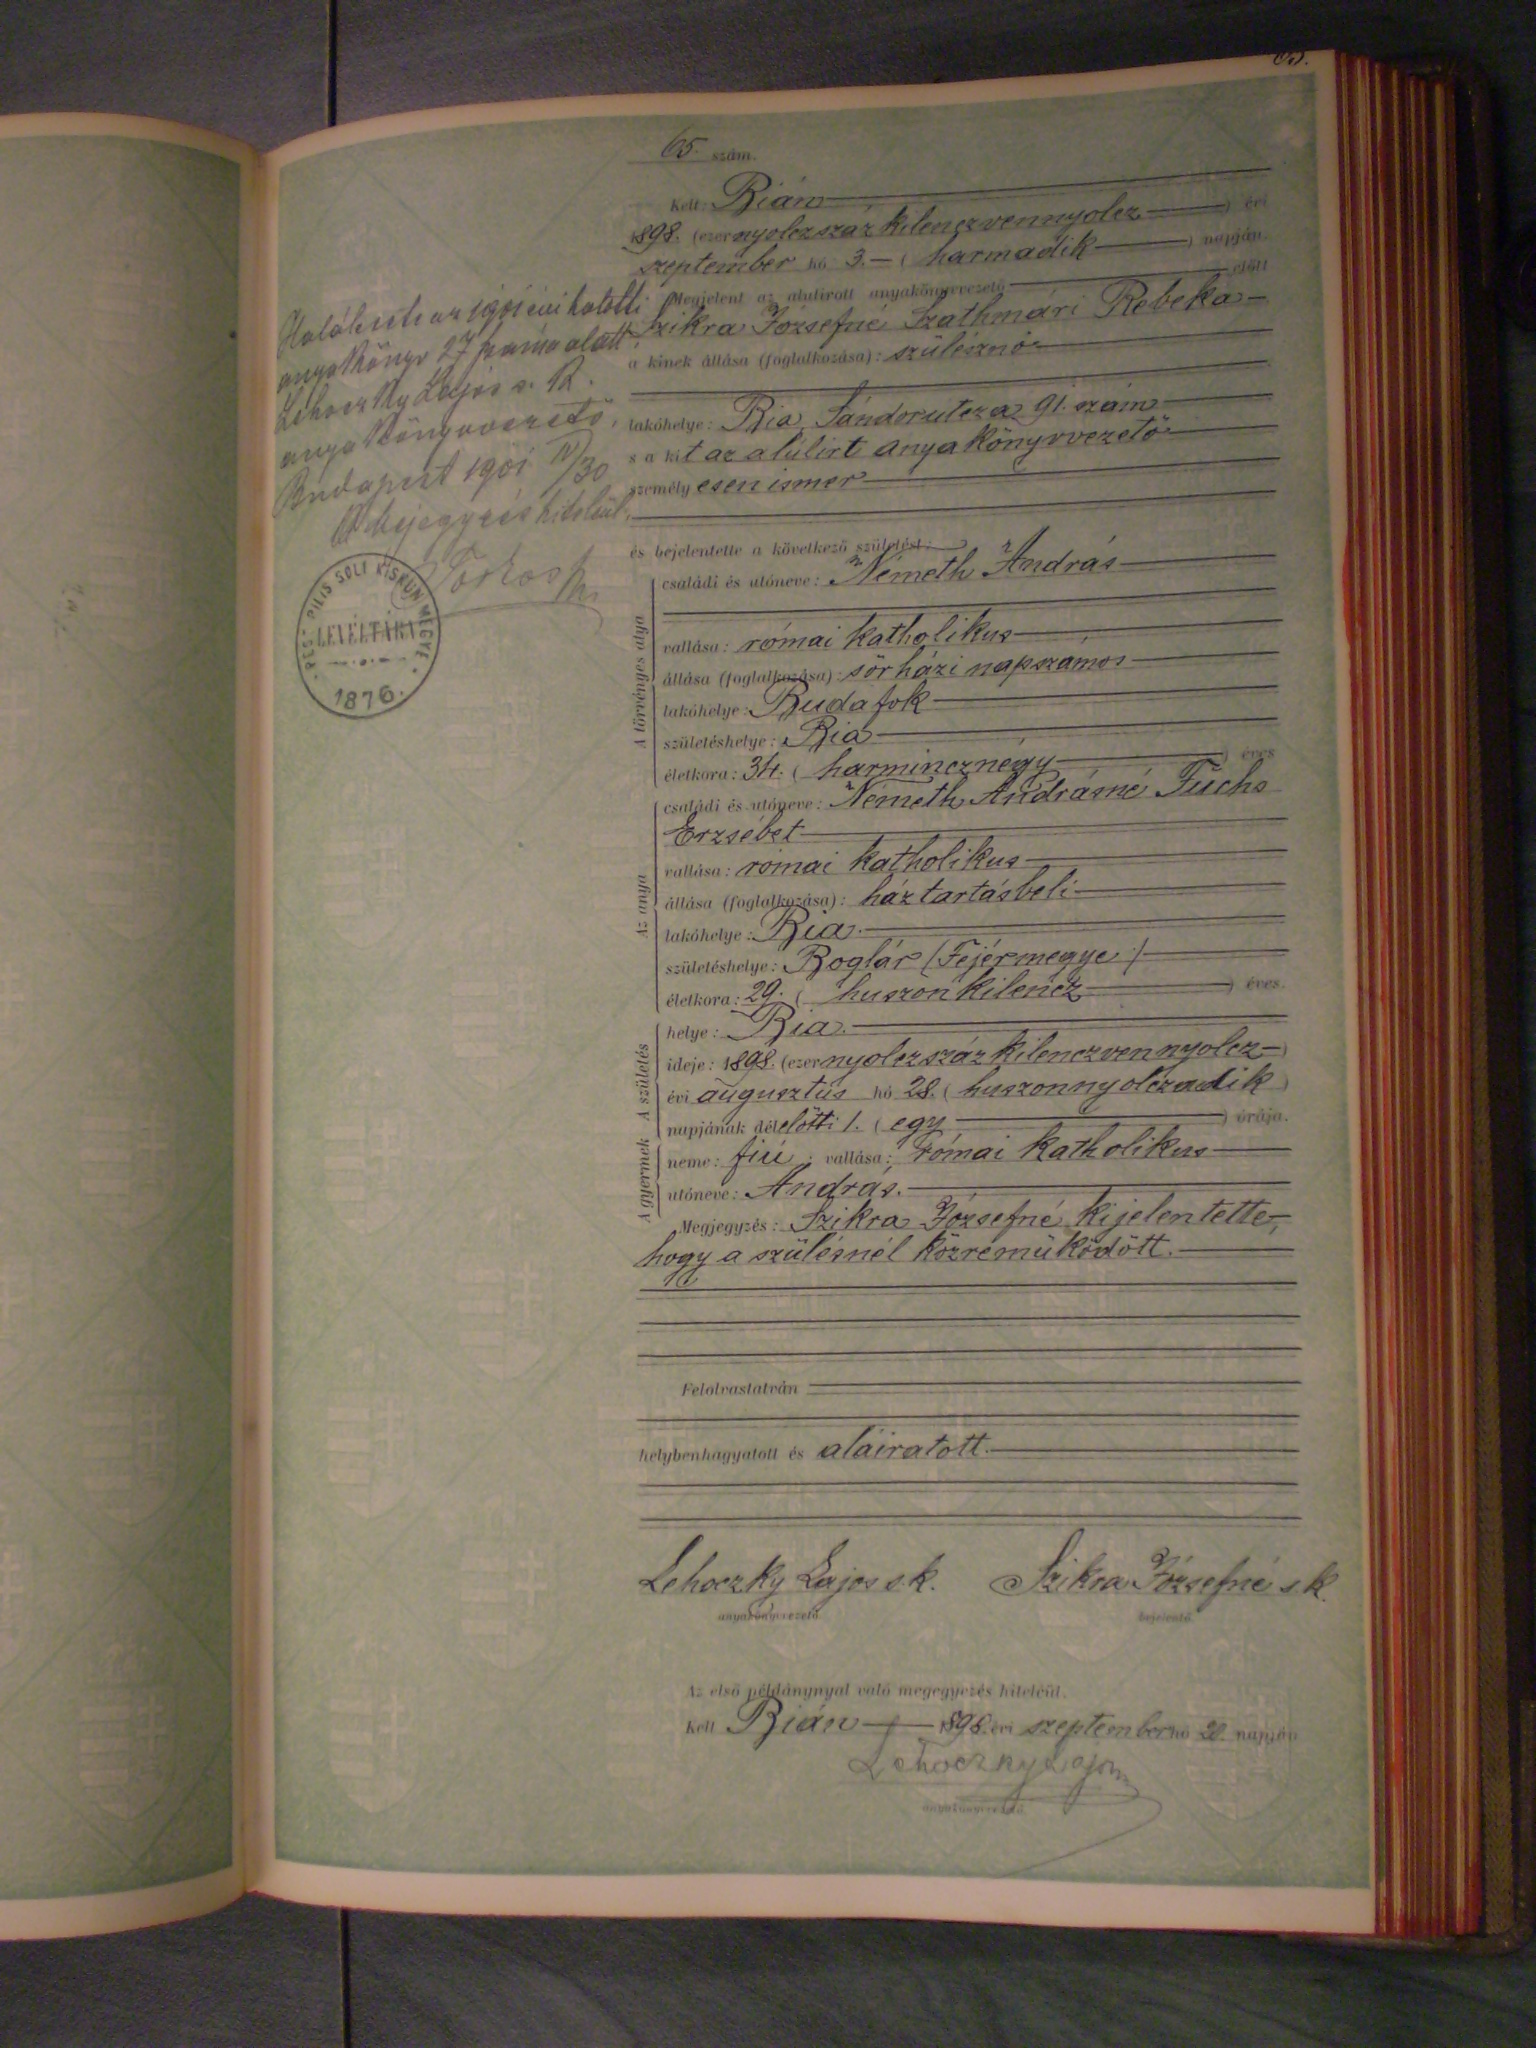 65.
65. szám.
Kelt: Bián
1898. (ezernyolczszázkilenczvennyolcz) évi
szeptember hó 3. (harmadik) napján.
Megjelent az alulirott anyakönyvvezető előtt
Szikra Józsefné Szathmári Rebeka
a kinek állása (foglalkozása): szülésznő
lakóhelye: Bia, Sándorutcza 91. szám
s a kit az alúlirt anyakönyvvezető
személyesen ismer
és bejelentette a következő születést:
A törvényes atya
családi és utóneve: Németh András
vallása: római katholikus
állása (foglalkozása): sörházi napszámos
lakóhelye: Budafok
születéshelye: Bia
életkora: 34. (harmincznégy) éves
Az anya
családi és utóneve: Németh Andrásné Fuchs
Erzsébet
vallása: római katholikus
állása (foglalkozása): háztartásbeli
lakóhelye: Bia.
születéshelye: Boglár (Fejérmegye)
életkora: 29. (huszonkilencz) éves.
A születés
helye: Bia.
ideje: 1898. (ezernyolczszázkilenczvennyolcz)
évi augusztus hó 28. (huszonnyolczadik)
napjának délelőtti 1. (egy) órája.
A gyermek
neme: fiú; vallása: római katholikus
utóneve: András.
Megjegyzés: Szikra Józsefné kijelentette,
hogy a szülésnél közreműködött.
Felolvastatván
helybenhagyatott és aláiratott.
Lehoczky Lajos s.k. Szikra Józsefné s.k.
anyakönyvvezető. bejelentő.
Az első példánynyal való megegyezés hiteléül.
Kelt Bián 1898. évi szeptember hó 20. napján
Lehoczky Lajos
anyakönyvvezető
Halálesete az 1901 évi halotti
anyakönyv 27 száma alatt.
Lehoczky Lajos s. k.
anyakönyvvezető.
Budapest 1901 IV/30
A bejegyzés hiteléül:
PEST PILIS SOLT KISKUN MEGYE
LEVÉLTÁRA
1876.